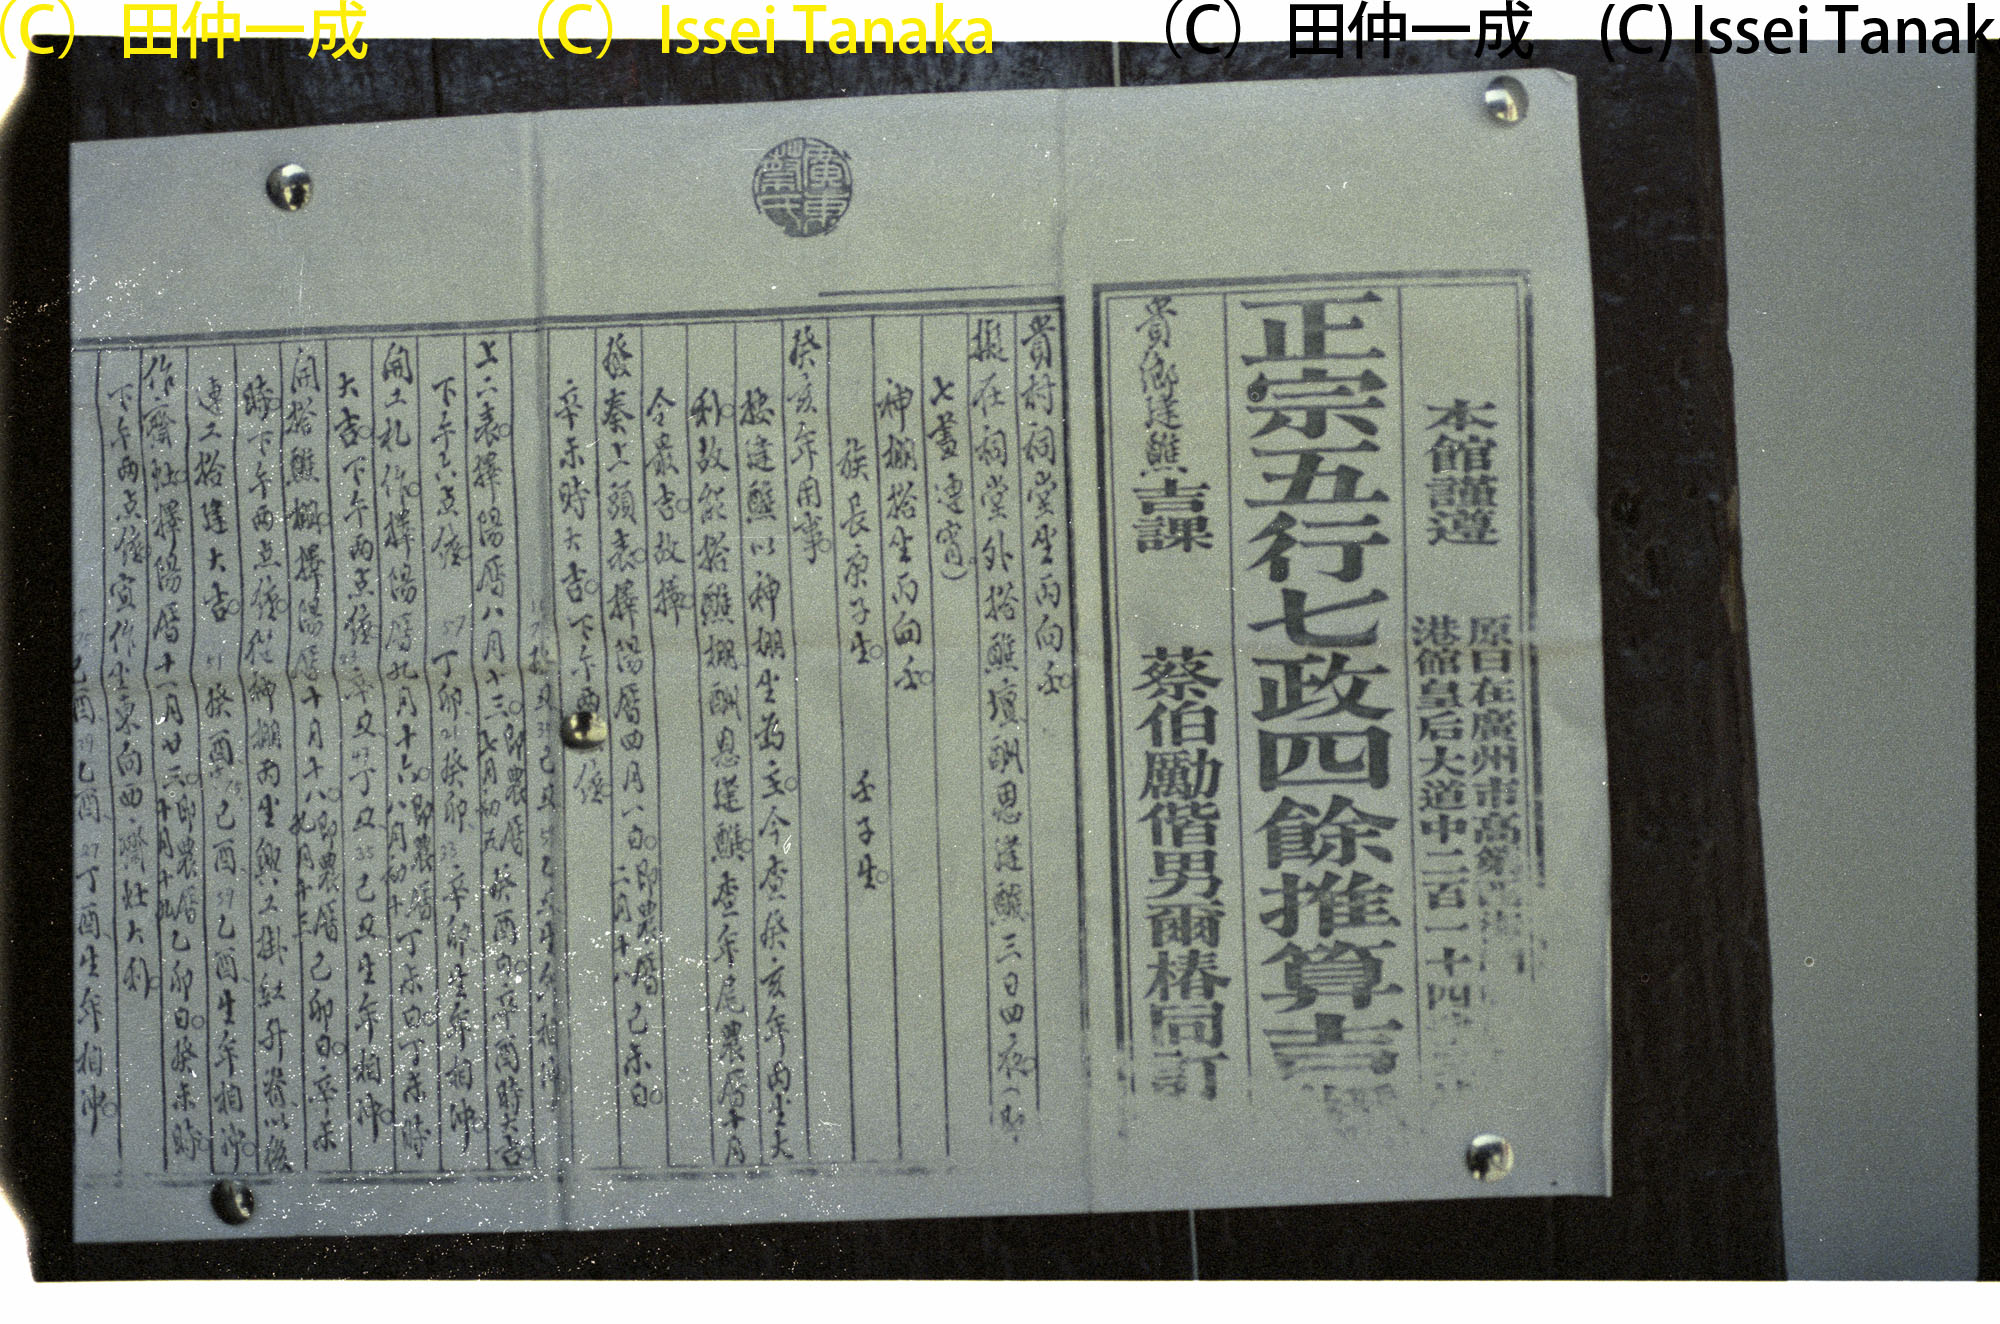 (C) 田仲一成
(C) Issei Tanaka
(C) 田仲一成
(C) Issei Tanak
廣東蔡氏
本館謹遵
原日在廣州市高第
港館皇后大道中二百一十四
正宗五行七政四餘推算吉
貴鄉建醮吉課
蔡伯勵偕男爾椿同訂
貴村祠堂坐丙向壬。
擬在祠堂外搭醮壇酬恩建醮三日四夜。(即
七晝連宵)。
神棚搭坐丙向壬。
族長庚子生。 壬子生。
癸亥年用事。
按建醮以神棚坐為主。今查癸亥年丙坐大
利。故能搭醮棚酬恩建醮。查年尾農曆十月
令最吉。故擇。
發奏上頭表。擇陽曆四月一日。即農曆二月十八己未日。
辛未時大吉。下午兩 鐘。
上二表。擇陽曆八月十三。即農曆七月初五癸酉日。辛酉時大吉。
下午六点鐘。 57 丁卯、21 癸卯、33 辛卯生年相沖。
開工札作。擇陽曆九月十六。即農曆八月初十丁未日。丁未時
大吉。下午兩点鐘。 辛丑 丁丑 35 己丑生年相沖。
開搭醮棚。擇陽曆十月十八。即農曆九月十三己卯日。辛未
時。下午兩点鐘。從神棚丙坐興工掛紅升脊。以後
連工搭建大吉。 51 癸酉、己酉、39 乙酉、生年相沖。
作齋灶。擇陽曆十一月廿三。即農曆十月十九乙卯日。癸未時。
下午兩点鐘。宣作坐東向西齋灶大利。
己酉、39 乙酉、27 丁酉、生年相沖。